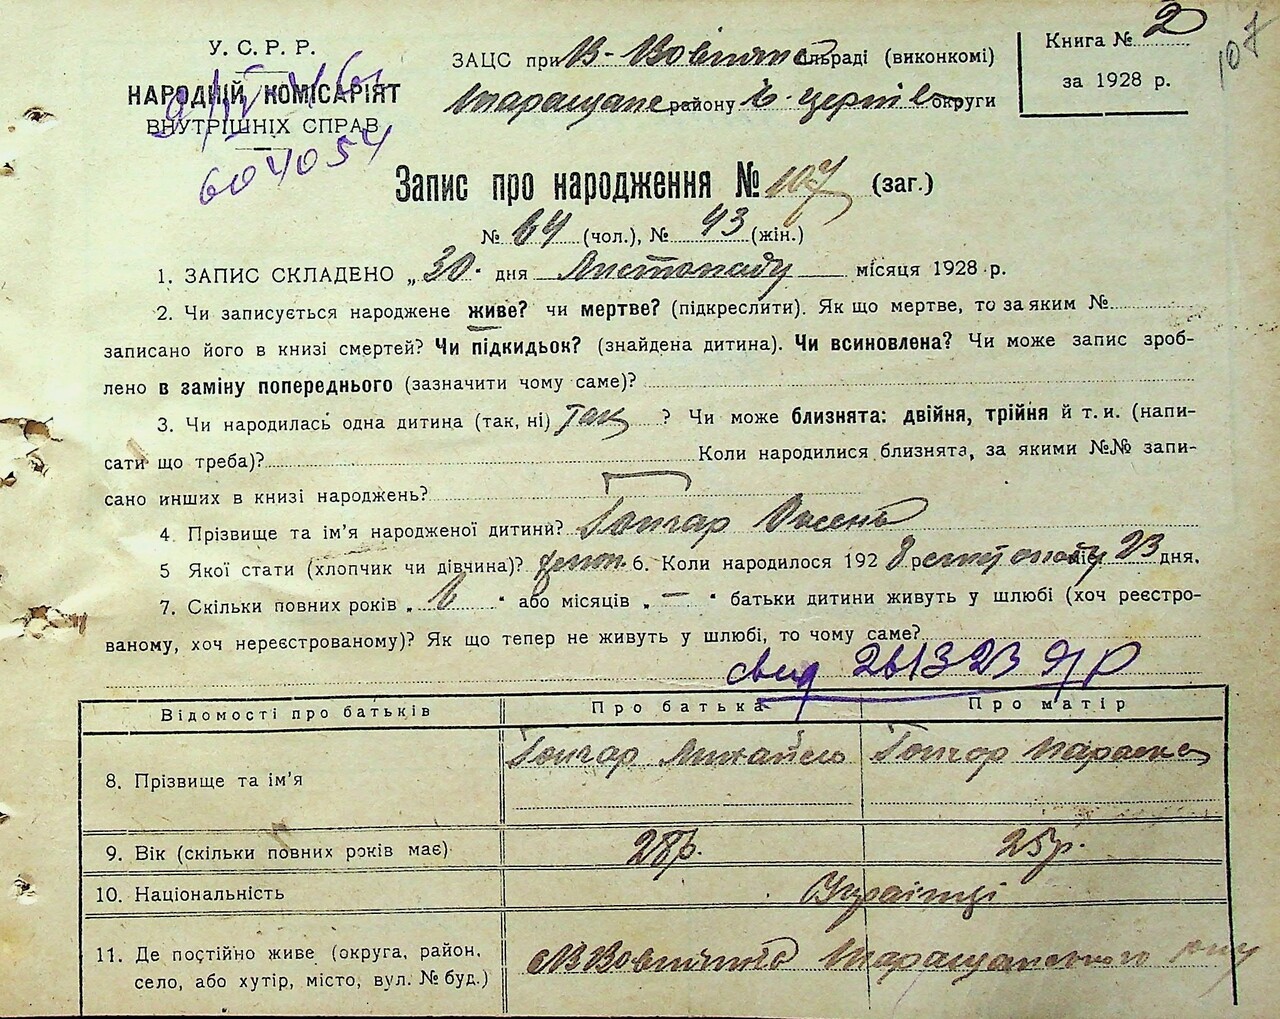 У. С. Р. Р.
НАРОДНІЙ КОМІСАРІЯТ
ВНУТРІШНІХ СПРАВ
604054
ЗАЦС при В-Вовнянс сільраді (виконкомі)
Таращанс району Б-церків округи
Книга № 2
за 1928 р.
107
Запис про народження № 107 (заг.)
№ 64 (чол.), № 43 (жін.)
1. ЗАПИС СКЛАДЕНО „30" дня Листопаду місяця 1928 р.
2. Чи записується народжене живе? чи мертве? (підкреслити). Як що мертве, то за яким №
записано його в книзі смертей? Чи підкидьок? (знайдена дитина). Чи всиновлена? Чи може запис зроб-
лено в заміну попереднього (зазначити чому саме)?
3. Чи народилась одна дитина (так, ні) так ? Чи може близнята: двійня, трійня й т. и. (напи-
сати що треба)? Коли народилися близнята, за якими №№ запи-
сано инших в книзі народжень?
4. Прізвище та ім'я народженої дитини? Гончар
5 Якої стати (хлопчик чи дівчина)? 6. Коли народилося 1928 р 23 дня.
7. Скільки повних років „ 6 " або місяців „ — " батьки дитини живуть у шлюбі (хоч реєстро-
ваному, хоч нереєстрованому)? Як що тепер не живуть у шлюбі, то чому саме?
свид 261323
Відомості про батьків Про батька Про матір
8. Прізвище та ім'я Гончар Михайло Гончар Параска
9. Вік (скільки повних років має) 28р. 25р.
10. Національність Українці
11. Де постійно живе (округа, район,
село, або хутір, місто, вул. № буд.) Таращанського